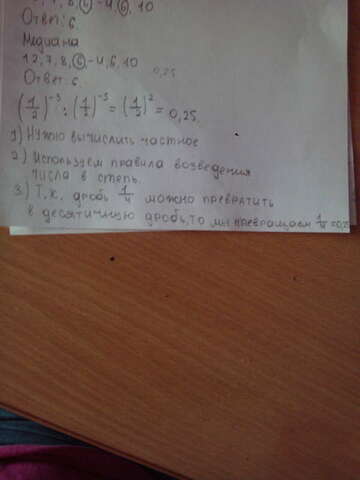 7, 8, 6 - 4, 6, 10
Ответ: 6.
Медиана
12, 7, 8, 6 - 4, 6, 10
Ответ: 6.
0,25
(1/2)^-3 : (1/2)^-5 = (1/2)^2 = 0,25
1) Нужно вычислить частное
2) Используем правила возведения
числа в степ.
3) Т.к. дробь 1/4 можно превратить
в десятичную дробь, то мы превращаем 1/4 = 0,25